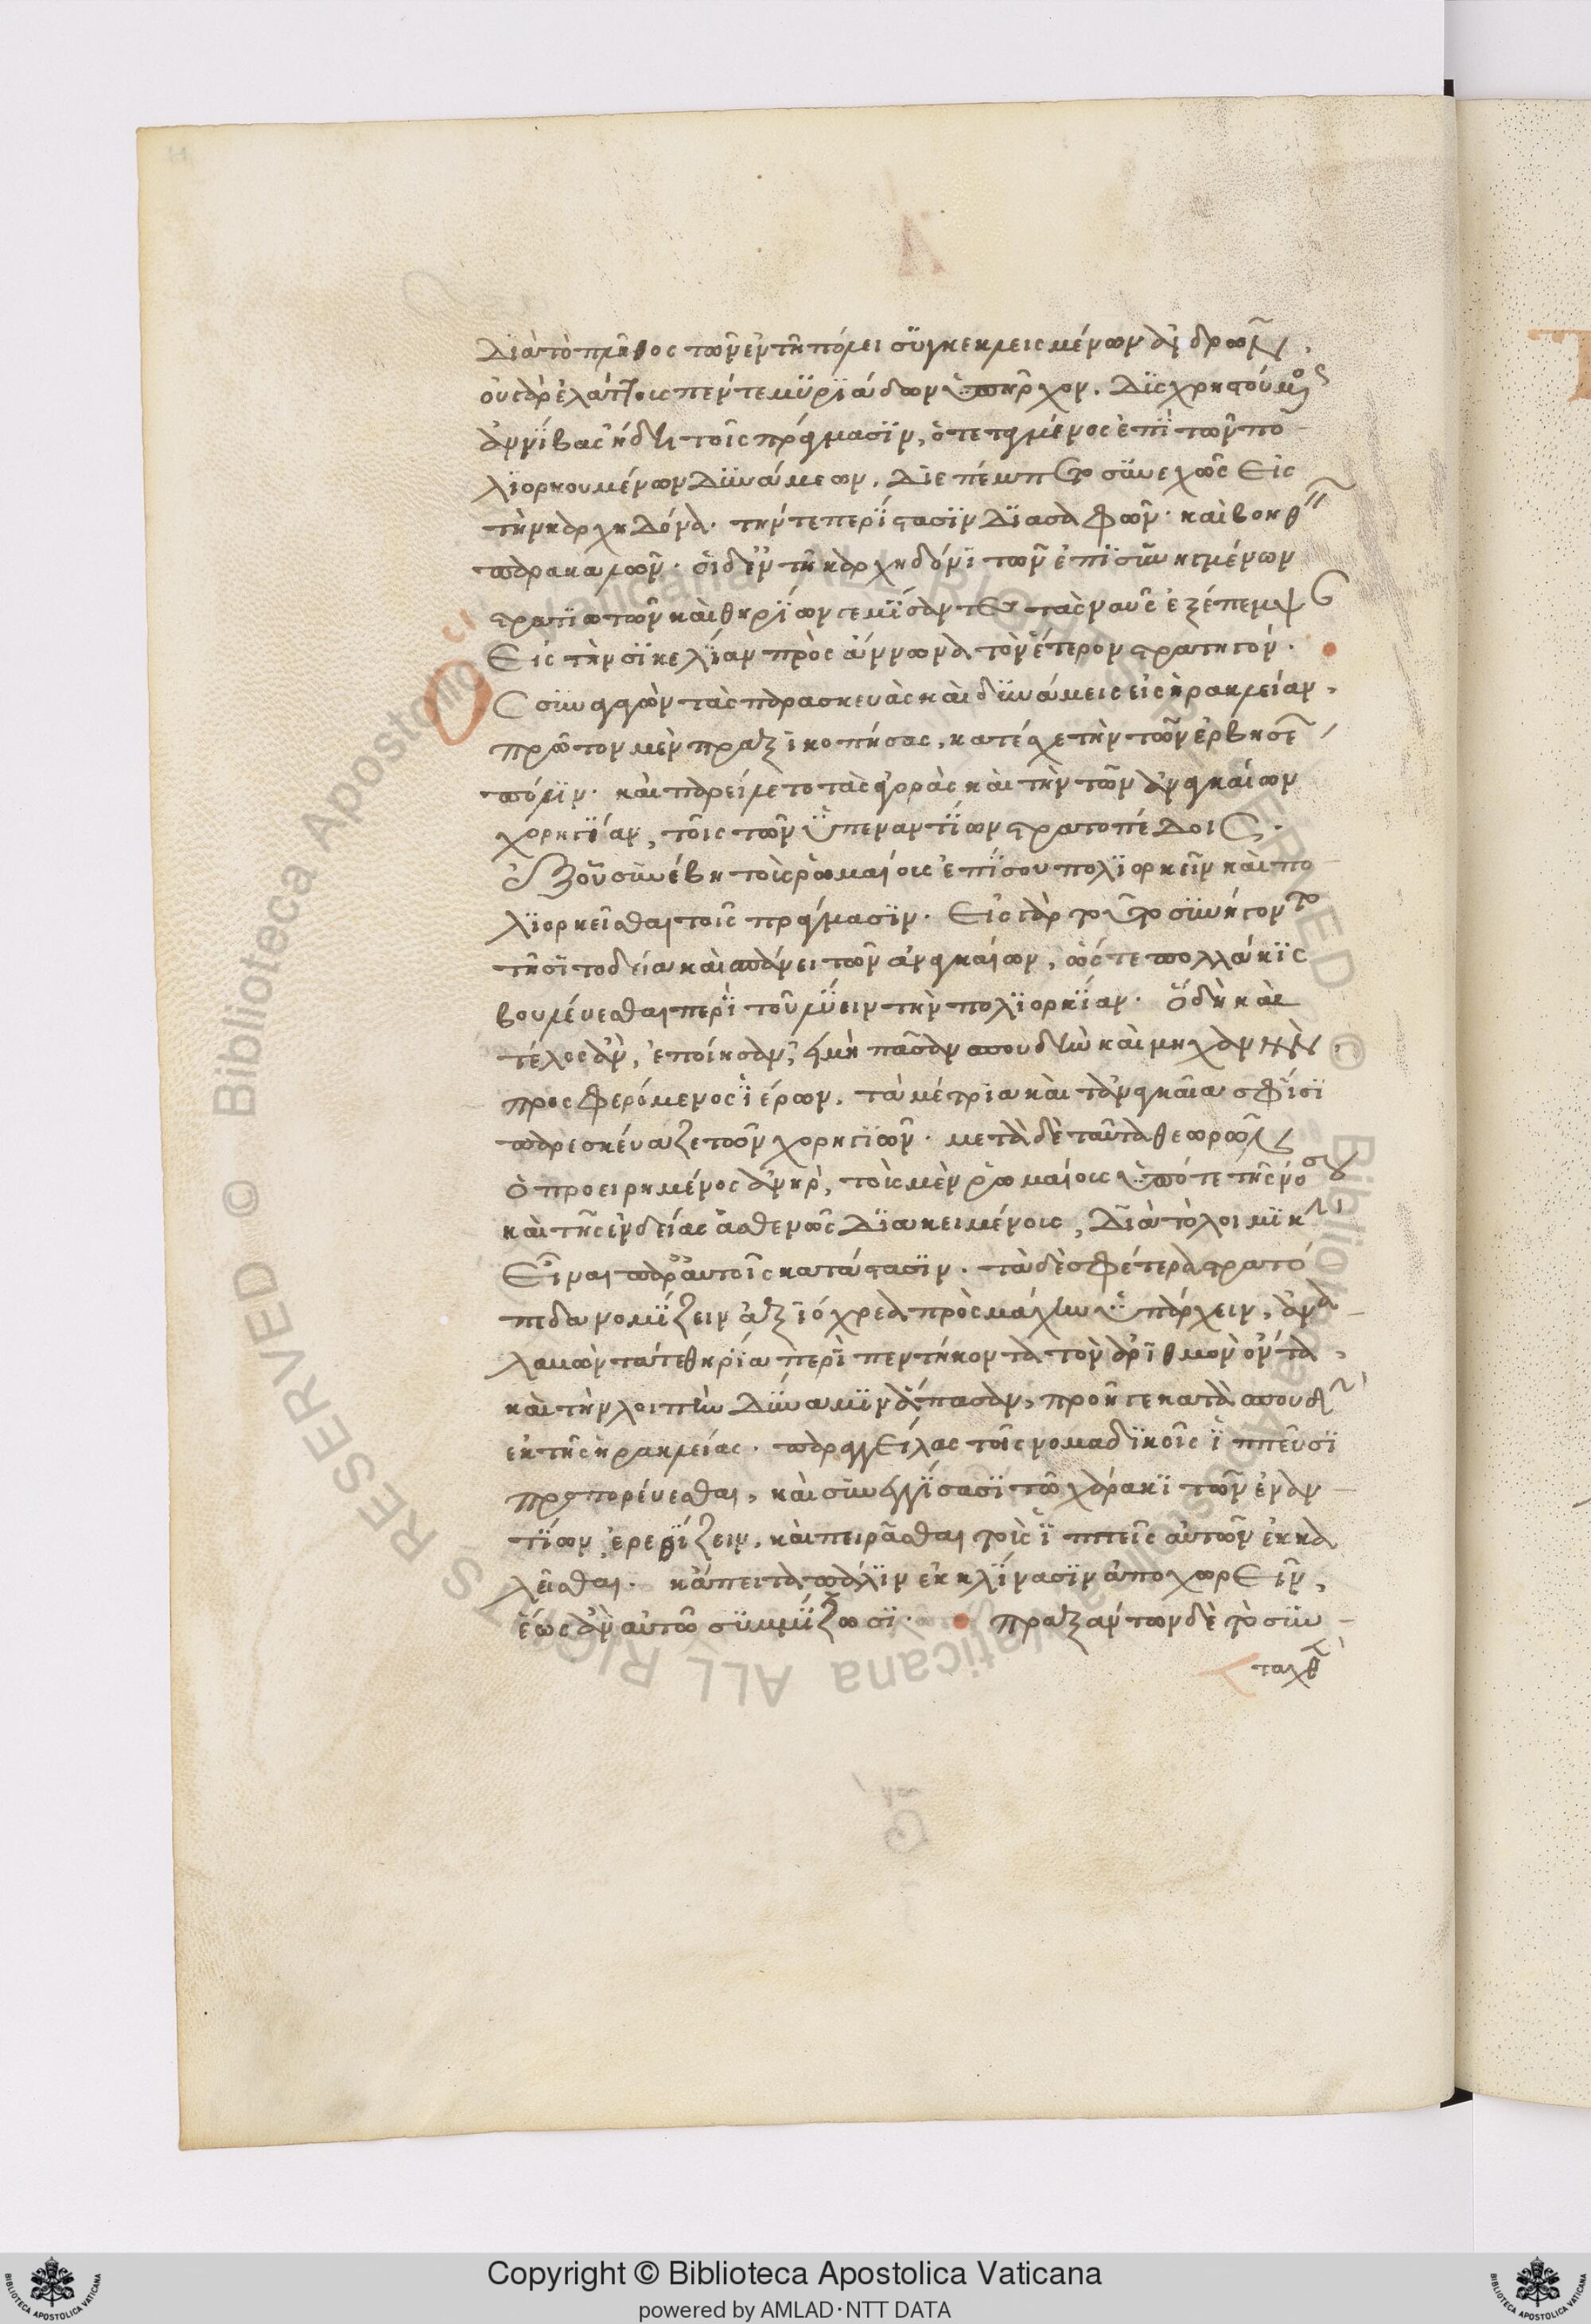 διὰ τὸ πλῆθος τῶν ἐν τῆ πόλει συγκεκλεισμένων ἀνδρῶν,
οὐ γὰρ ἐλάττους πέντε μυριάδων ὑπῆρχον. δυσχρηστούμενος
ἀννίβας ἤδη τοῖς πράγμασιν, ὁ τεταγμένος ἐπὶ τῶν πο-
λιορκουμένων δυνάμεων, διεπέμπετο συνεχῶς εἰς
τὴν καρχηδόνα. τήν τε περίστασιν διασαφῶν. καὶ βοηθεῖν
παρακαλῶν. οἱ δ' ἐν τῆ καρχηδόνι τῶν ἐπισυνηγμένων
στρατιωτῶν καὶ θηρίων γεμίσαντες τὰς ναῦς ἐξέπεμψαν
εἰς τὴν σικελίαν πρὸς ἄννωνα τὸν ἕτερον στρατηγόν.
Ὃς συναγαγὼν τὰς παρασκευὰς καὶ δυνάμεις εἰς ἡράκλειαν,
πρῶτον μὲν πραξικοπήσας, κατέσχε τὴν τῶν ἐρβησέων
πόλιν. καὶ παρείλετο τὰς ἀγορὰς καὶ τὴν τῶν ἀναγκαίων
χορηγίαν, τοῖς τῶν ὑπεναντίων στρατοπέδοις.
ἐξ οὗ συνέβη τοὺς ῥωμαίους ἐπίσου πολιορκεῖν καὶ πο-
λιορκεῖσθαι τοῖς πράγμασιν. εἰς γὰρ τοῦτο συνήγοντο
τῆ σιτοδεία καὶ σπάνει τῶν ἀναγκαίων, ὥστε πολλάκις
βουλεύεσθαι περὶ τοῦ λύειν τὴν πολιορκίαν. ὃ δὴ καὶ
τέλος ἂν, ἐποίησαν, εἰ μὴ πᾶσαν σπουδὴν καὶ μηχανὴν,
προσφερόμενος ἱέρων, τὰ μέτρια καὶ τἀναγκαῖα σφίσι
παρεσκεύαζε τῶν χορηγιῶν. μετὰ δὲ ταῦτα θεωρῶν
ὁ προειρημένος ἀνὴρ, τοὺς μὲν ῥωμαίους ὑπό τε τῆς νόσου
καὶ τῆς ἐνδείας ἀσθενῶς διακειμένους, διὰ τὸ λοιμικὴν
εἶναι παρ' αὐτοῖς κατάστασιν. τὰ δὲ σφέτερα στρατό
πεδα νομίζειν ἀξιόχρεα πρὸς μάχην ὑπάρχειν, ἀνα-
λαβὼν τά τε θηρία περὶ πεντήκοντα τὸν ἀριθμὸν ὄντα,
καὶ τὴν λοιπὴν δύναμιν ἅπασαν, προῆγε κατὰ σπουδὴν
ἐκ τῆς ἡρακλείας. παραγγείλας τοῖς νομαδικοῖς ἱππεῦσι
προπορεύεσθαι, καὶ συνεγγίσασι τῶ χάρακι τῶν ἐναν-
τίων, ἐρεθίζειν, καὶ πειρᾶσθαι τοὺς ἱππεῖς αὐτῶν ἐκκα
λεῖσθαι. κἄπειτα πάλιν ἐκκλίνασιν ἀποχωρεῖν,
ἕως ἂν αὐτῶ συμμίξωσι. πραξάντων δὲ τὸ συν-
ταχθὲν
Copyright © Biblioteca Apostolica Vaticana
powered by AMLAD·NTT DATA